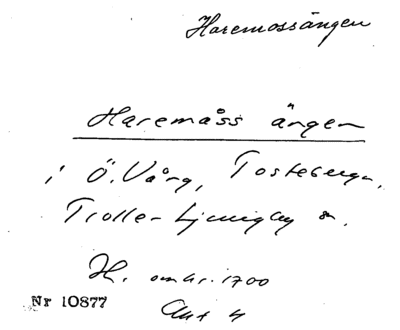 Haremossängen
Haremåss ängen
i Ö. Vång, Tosteberga,
Trolle-Ljungby sn.
H. omkr. 1700
Akt 4
Nr 10877